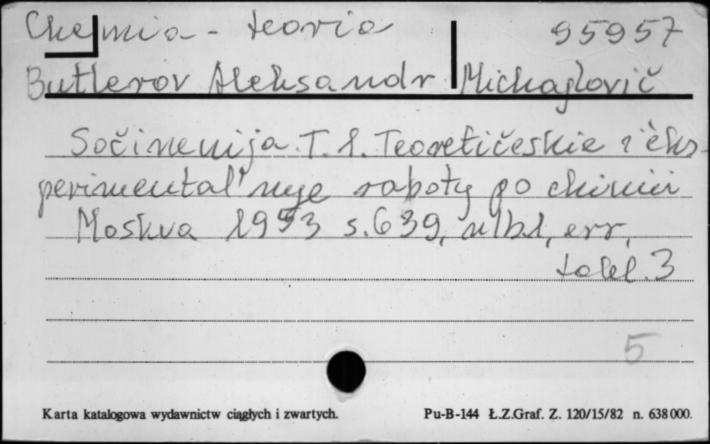 Chemia - teoria 95957
Butlerov Aleksandr Michajlovič
Sočinenija. T. 1. Teoretičeskie i èks-
perimental'nye raboty po chimii
Moskva 1953 s. 639, nlb1, err,
tabl. 3
5
Karta katalogowa wydawnictw ciągłych i zwartych. Pu-B-144 Ł.Z.Graf. Z. 120/15/82 n. 638000.